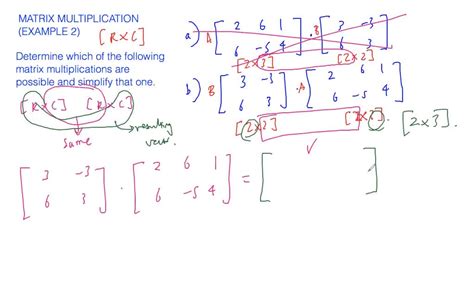 MATRIX MULTIPLICATION
(EXAMPLE 2) [R×C]
Determine which of the following
matrix multiplications are
possible and simplify that one.
[R×C] [R×C]
same
resulting
a) A [2 6 1
6 -5 4] · B [3 -3
6 3]
[2×3] [2×2]
b) B [3 -3
6 3] · A [2 6 1
6 -5 4]
[2×2] [2×3] · [2×3].
✓
[3 -3
6 3] · [2 6 1
6 -5 4] = [ ]